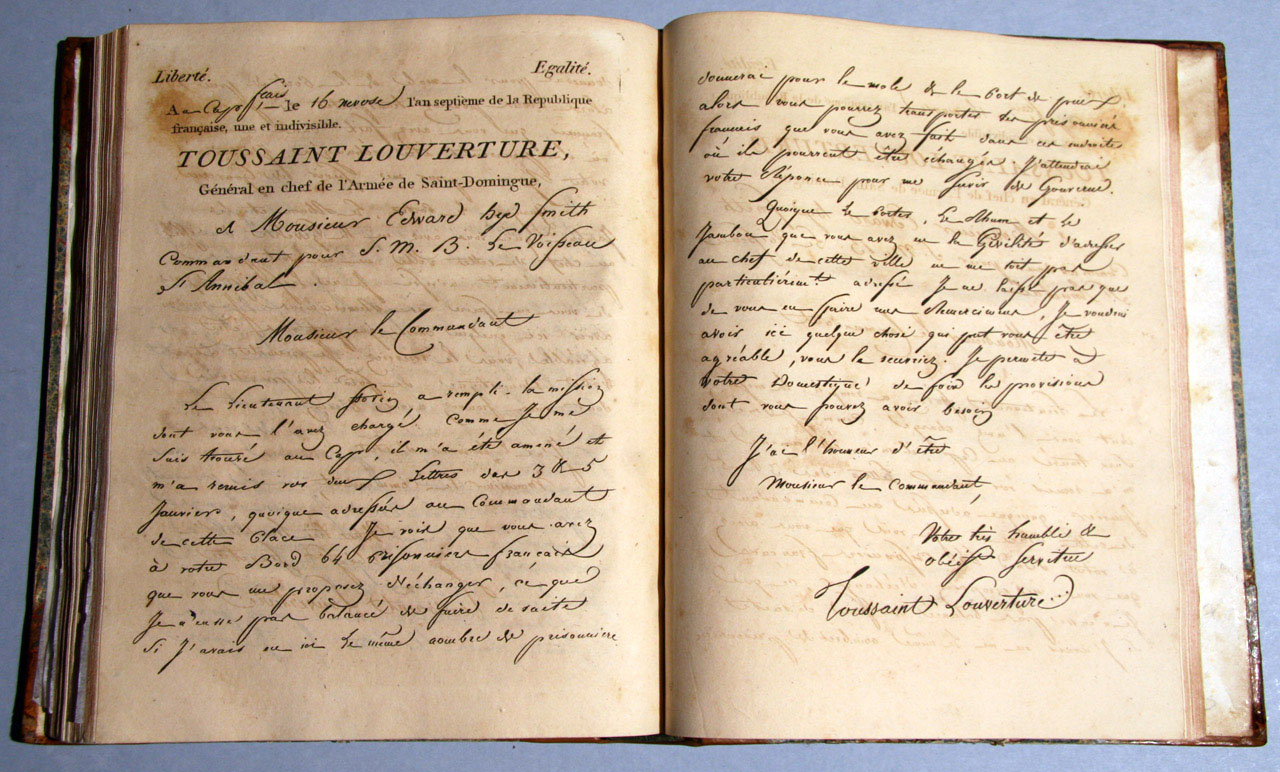 Liberté. Egalité.
A u Cap fçais le 16 nivose l'an septième de la Republique
française, une et indivisible.
TOUSSAINT LOUVERTURE,
Général en chef de l'Armée de Saint-Domingue,
A Monsieur Edward Smith
Commandant pour S. M. B. Le Voisseau
L'Annibal.
Monsieur le Commandant
Le Lieutenant a rempli la mission
dont vous l'avez chargé, comme Je me
suis trouvé au Cap, il m'a été amené et
m'a remis vos deux Lettres des 3 & 5
Janvier, quoique adressés au Commandant
de cette Place. Je vois que vous avez
à votre Bord 64 prisonniers français
que vous me proposez d'échanger, ce que
Je n'eusse pas balancé de faire de suite
Si J'avais eu ici le même nombre de prisonniers
donnerai pour le mole de la Port de paix
alors vous pourrez transporter des prisonniers
francais que vous avez fait dans ces endroits
où ils pourront être échangés J'attendrai
votre Réponse pour me servir de Gouverne.
Quoique le Portes, le Rhum et le
Jambon que vous avez eu la Civilité d'adresser
au chef de cette ville ne me soit pas
particulièrim.t adressé Je ne laisse pas que
de vous en faire mes Remerciemens, Je voudrais
avoir ici quelque chose qui put vous être
agréable, vous la recevriez. Je permets à
votre Domestique de faire les provisions
dont vous pouvez avoir besoin
J'ai l'honneur d'être
Monsieur le commandant,
Votre très humble &
obéiss. Serviteur
Toussaint Louverture